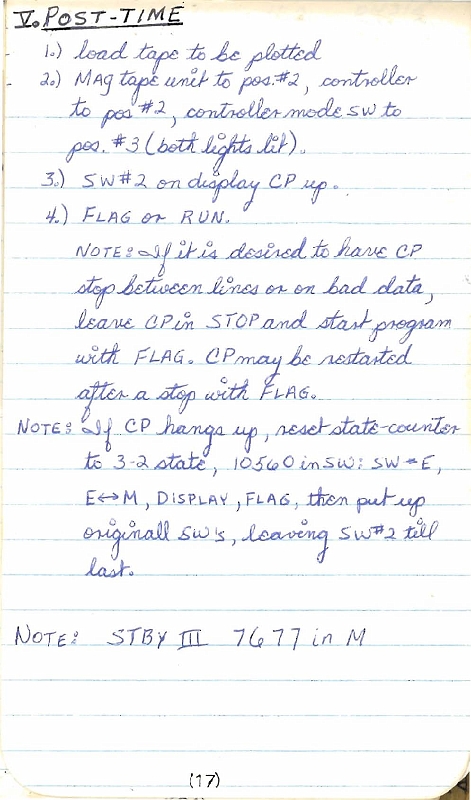 V. POST-TIME
1.) load tape to be plotted
2.) MAg tape unit to pos.#2, controller
to pos #2, controller mode SW to
pos. #3 (both lights lit).
3.) SW#2 on display CP up.
4.) FLAG or RUN.
NOTE: If it is desired to have CP
stop between lines or on bad data,
leave CP in STOP and start program
with FLAG. CP may be restarted
after a stop with FLAG.
NOTE: If CP hangs up, reset state-counter
to 3-2 state, 10560 in SW: SW→E,
E↔M, DISPLAY, FLAG, then put up
originall SW's, leaving SW#2 till
last.
NOTE: STBY III 7677 in M
(17)